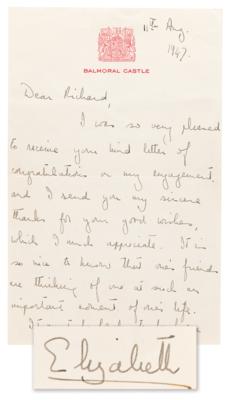 11th Aug.
1947.
BALMORAL CASTLE
Dear Richard,
I was so very pleased
to receive your kind letter of
congratulations on my engagement,
and I send you my sincere
thanks for your good wishes,
which I much appreciate. It is
so nice to know that one's friends
are thinking of one at such an
important moment of one's life.
Elizabeth